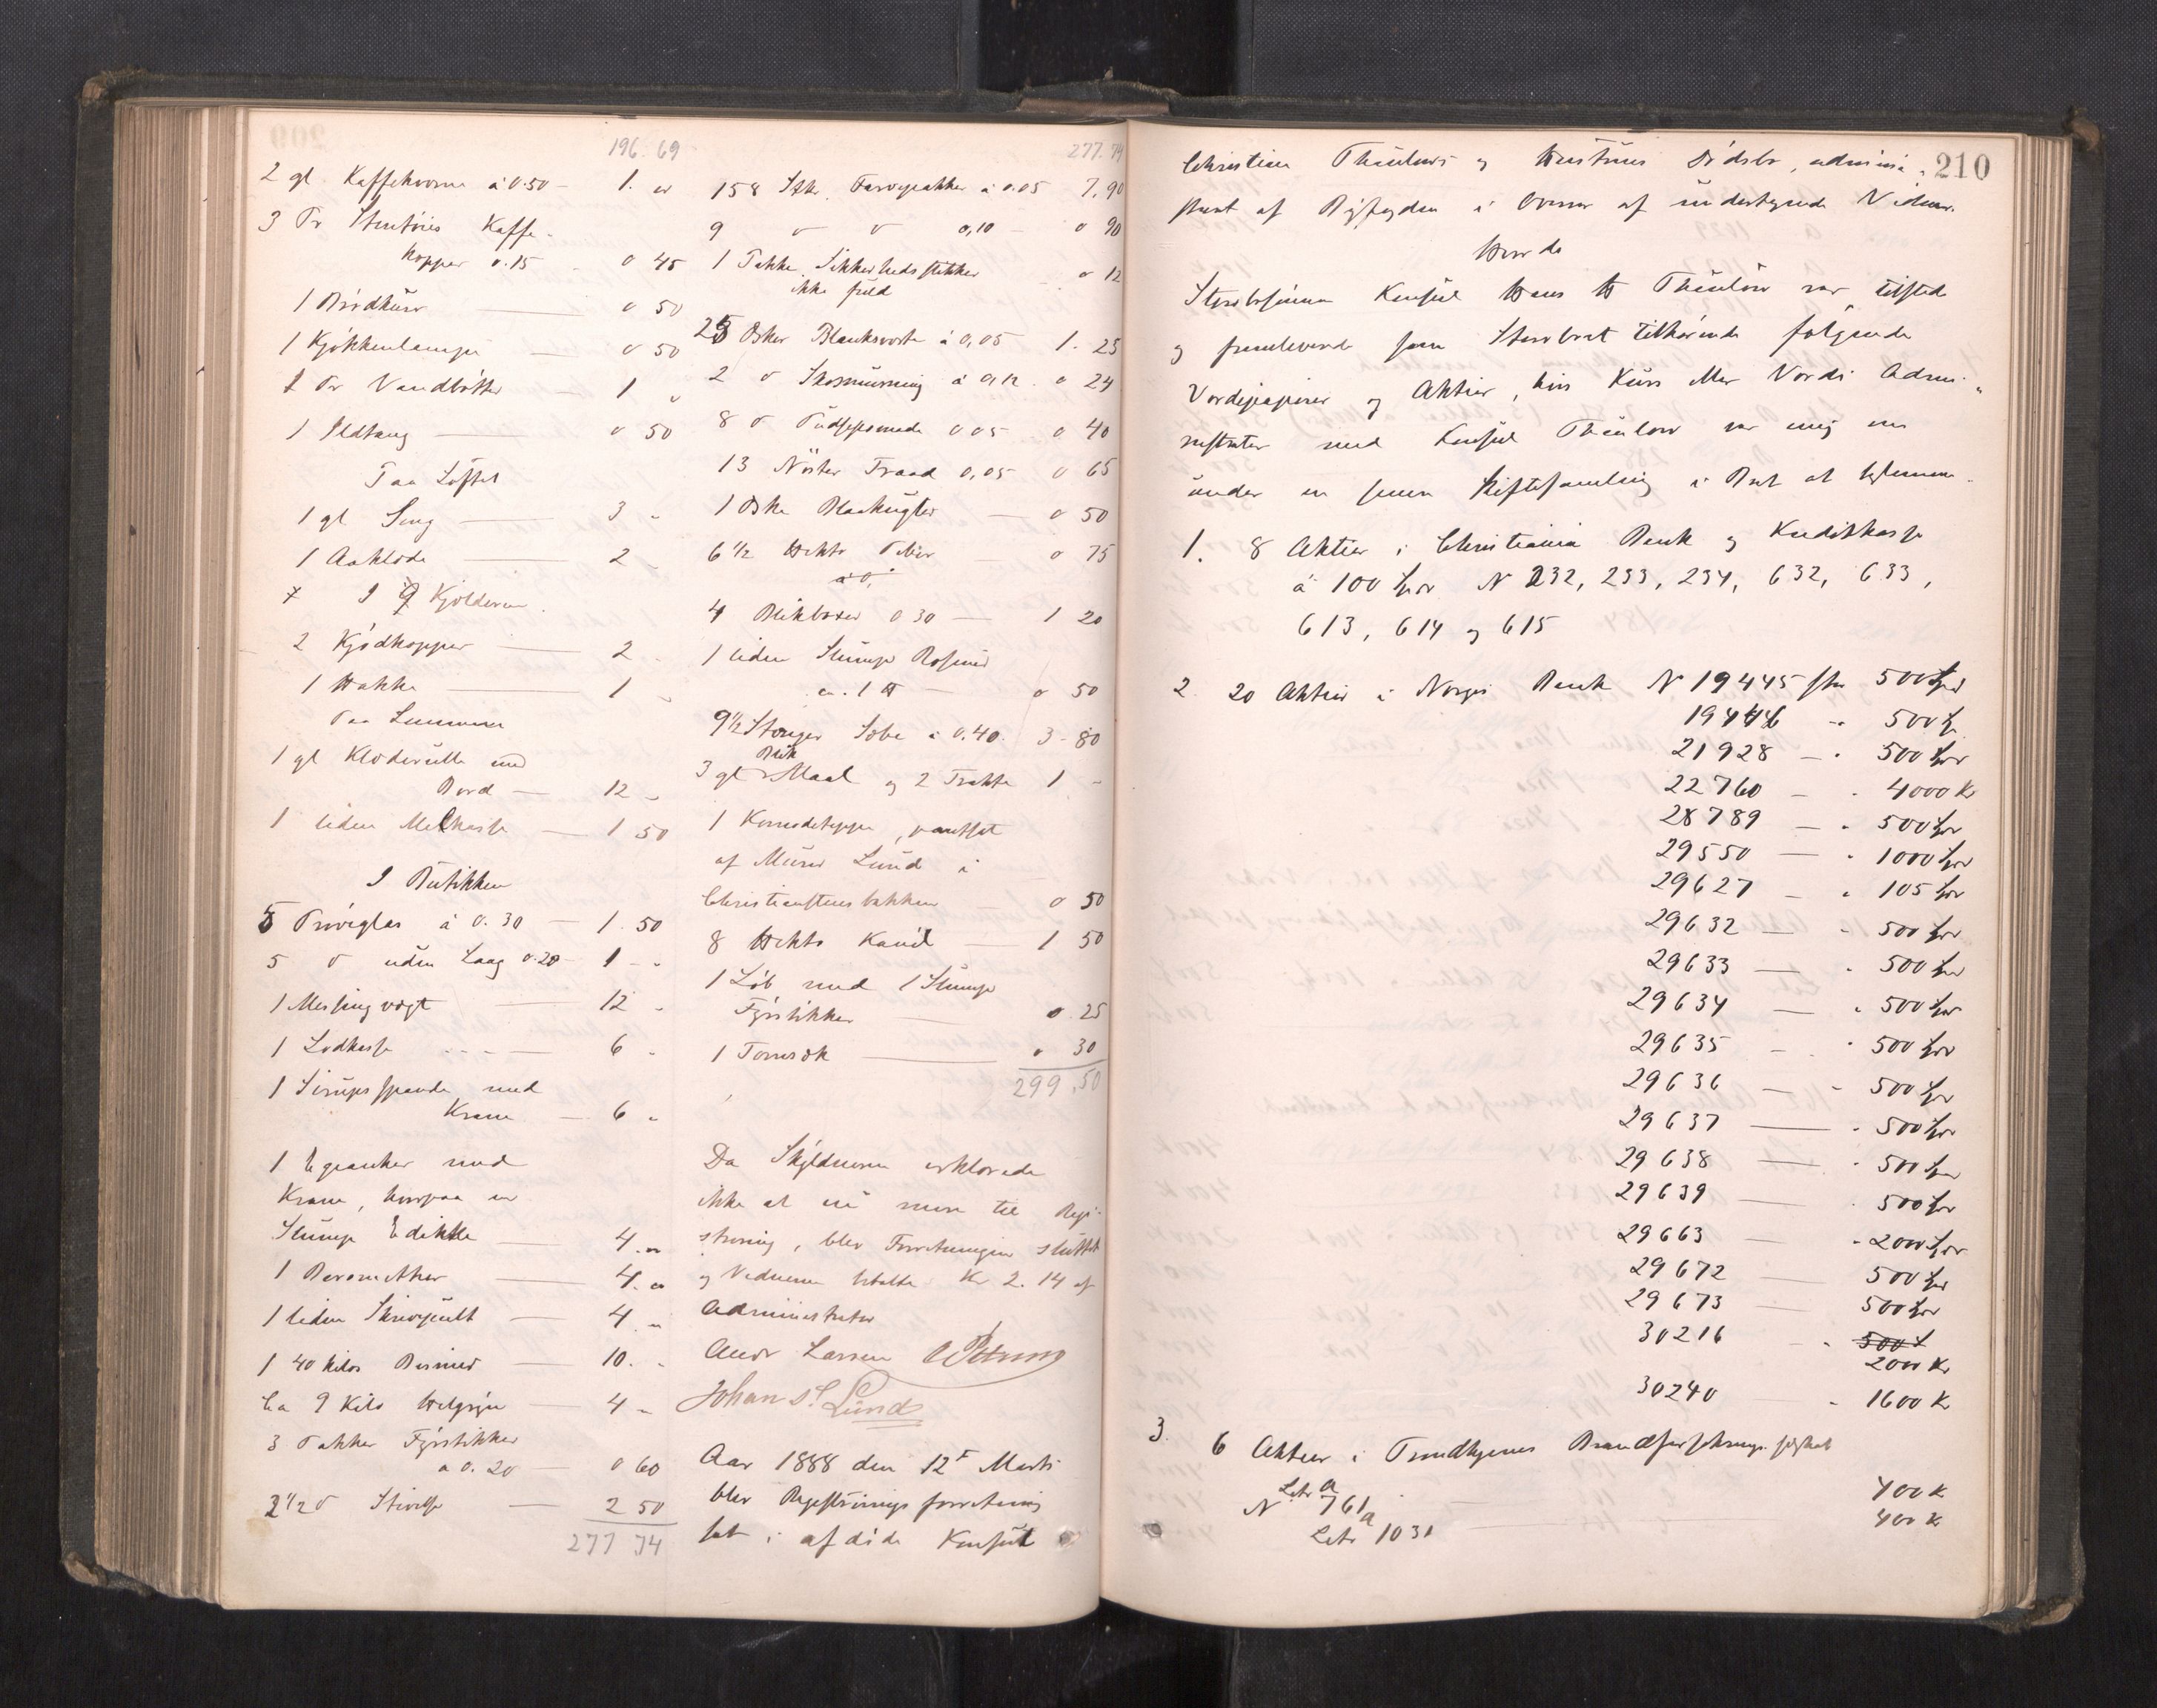 196.69
2 gl Kaffekværne à 0.50 — 1. "
3 Pr Stentøies Kaffe-
kopper 0.15 0 45
1 Brødkurv 0 50
1 Kjøkkenlampe 0 50
1 Pr Vandbøtter — 1 "
1 Ildtang — 0 50
Paa Loftet
1 gl Seng — 3 "
1 Aaklæde — 2 "
I Kjelderen
2 Kjødkopper — 2
1 Hakke — 1
1 gl Klæderulle med
Bord — 12 "
1 liden Melkasse — 1 50
I Butikken
5 Prøveglas à 0.30 — 1.50
5 " uden Laag 0.20 — 1 - "
1 Messingvægt 12 -
1 Lodkasse - - - — 6 "
1 Sirupsspande med
Krane — 6 "
1 Eganker med
Krane, hvorpaa en
Slump Edikke — 4. "
1 Baromether — 4. "
1 liden Skrivepult — 4 "
1 40 kilos Bismer — 10. "
Ca 9 Kilo Helgryn — 4 "
3 Pakker Fyrstikker
a 0.20 — 0 60
2½ " Stivelse — 2 50
277 74
277.74
158 Stkr. Farvepakker à 0.05 7,90
9 " " 0,10 — 0 90
1 Pakke Sikkerhedsstikker 0 12
ikke fuld
25 Æsker Blanksværte à 0,05 1.25
2 " Skosmurning à 0,12. 0 24
8 " Pudsepomade 0 05 0 40
13 Nøster Traad 0,05 0 65
1 Æske 0 50
6½ Hekto Peber 0 75
à 0.
4 Blikboxer 0 30 — 1 20
1 liden Slump Rosiner
ca. 1 ℔ — 0 50
9½ Stænger Sæbe à 0.40. 3 - 80
Blik
3 gl Maal og 2 Trakte 1 -
1 Komodeteppe, pantsat
af Murer Lund i
Christianstensbakken 0 50
8 Hekto Kanel 1 50
1 Løb med 1 Slump
Fyrstikker — 0.25
1 Tomsæk — 0 30
299.50
Da Skyldneren erklærede
ikke at eie mere til Regi-
strering, blev Forretningen sluttet
og Vidnerne betalte Kr 2.14 af
Administrator
Andr Larsen
Johan St Lund
Aar 1888 den 12te Marts
blev Registreringsforretning
sat i afdøde Konsul
210
Christian Thaulows og Hustrues Dødsbo, admini-
streret af Byfogden i Overvær af undertegnede Vidner.
Hvorda
Stervbosønnen Konsul Hans H Thaulow var tilstede
og fremleverede som Stervboet tilhørende følgende
Værdipapirer og Aktier, hvis Kurs eller Værdi Admi-
nistrator med Konsul Thaulow var enig om
under en senere Skiftesamling i Boet at bestemme.
1. 8 Aktier i Christiania Bank og Kreditkasse
à 100 Spdr N 232, 233, 234, 632, 633,
613, 614 og 615
2. 20 Aktier i Norges Bank N 19445 stor 500 Spd
19446 - " 500 Sp
21928 — " 500 Spdr
22760 — " 4000 Kr
28789 — " 500 Spdr
29550 — " 1000 Spdr
29627 — " 105 Spdr
29632 — " 500 Spdr
29633 — " 500 Spdr
29634 — " 500 Spdr
29635 — " 500 Spdr
29636 — " 500 Spdr
29637 — " 500 Spdr
29638 — " 500 Spdr
29639 — " 500 Spdr
29663 " 2000 Spdr
29672 — 500 Spdr
29673 — 500 Spdr
30216 — " 500 S
2000 Kr
30240 — " 1600 Kr
3. 6 Aktier i Trondhjems Brandforsikrings selskab
Litr a
N 761 — 400 K
a
Litr 1031 — 400 K